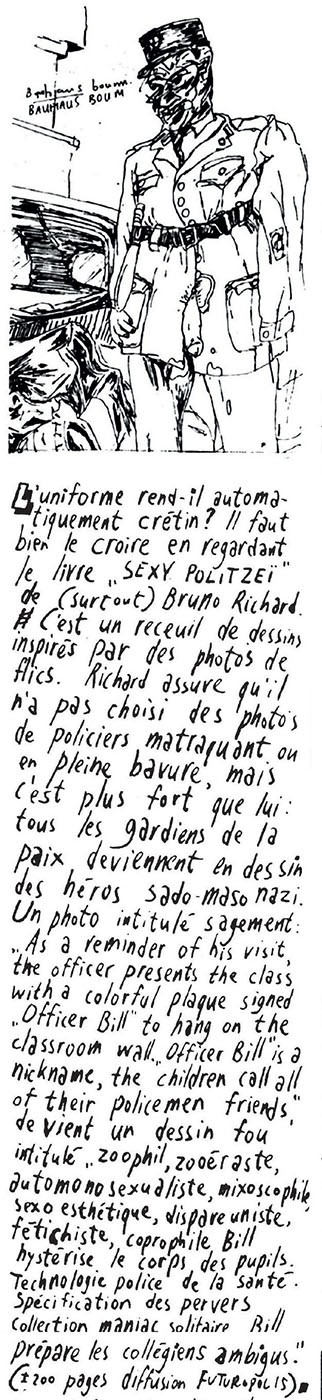 Bauhaus boum.
BAUHAUS BOUM
L'uniforme rend-il automa-
tiquement crétin? Il faut
bien le croire en regardant
le livre „SEXY POLITZEÏ"
de (surtout) Bruno Richard.
# C'est un receuil de dessins
inspirés par des photos de
flics. Richard assure qu'il
n'a pas choisi des photos
de policiers matraquant ou
en pleine bavure, mais
c'est plus fort que lui:
tous les gardiens de la
paix deviennent en dessin
des héros sado-maso nazi.
Un photo intitulé sagement:
„As a reminder of his visit,
the officer presents the class
with a colorful plaque signed
„Officer Bill" to hang on the
classroom wall. „Officer Bill" is a
nickname, the children call all
of their policemen friends"
de vient un dessin fou
intitulé „zoophil, zooéraste,
automonosexualiste, mixoscophile,
sexo esthétique, dispareuniste,
fétichiste, coprophile Bill
hystérise le corps des pupils.
Technologie police de la santé.
Spécification des pervers
Collection maniac solitaire Bill
prépare les collégiens ambigus."
(±200 pages diffusion FUTUROPOLIS)